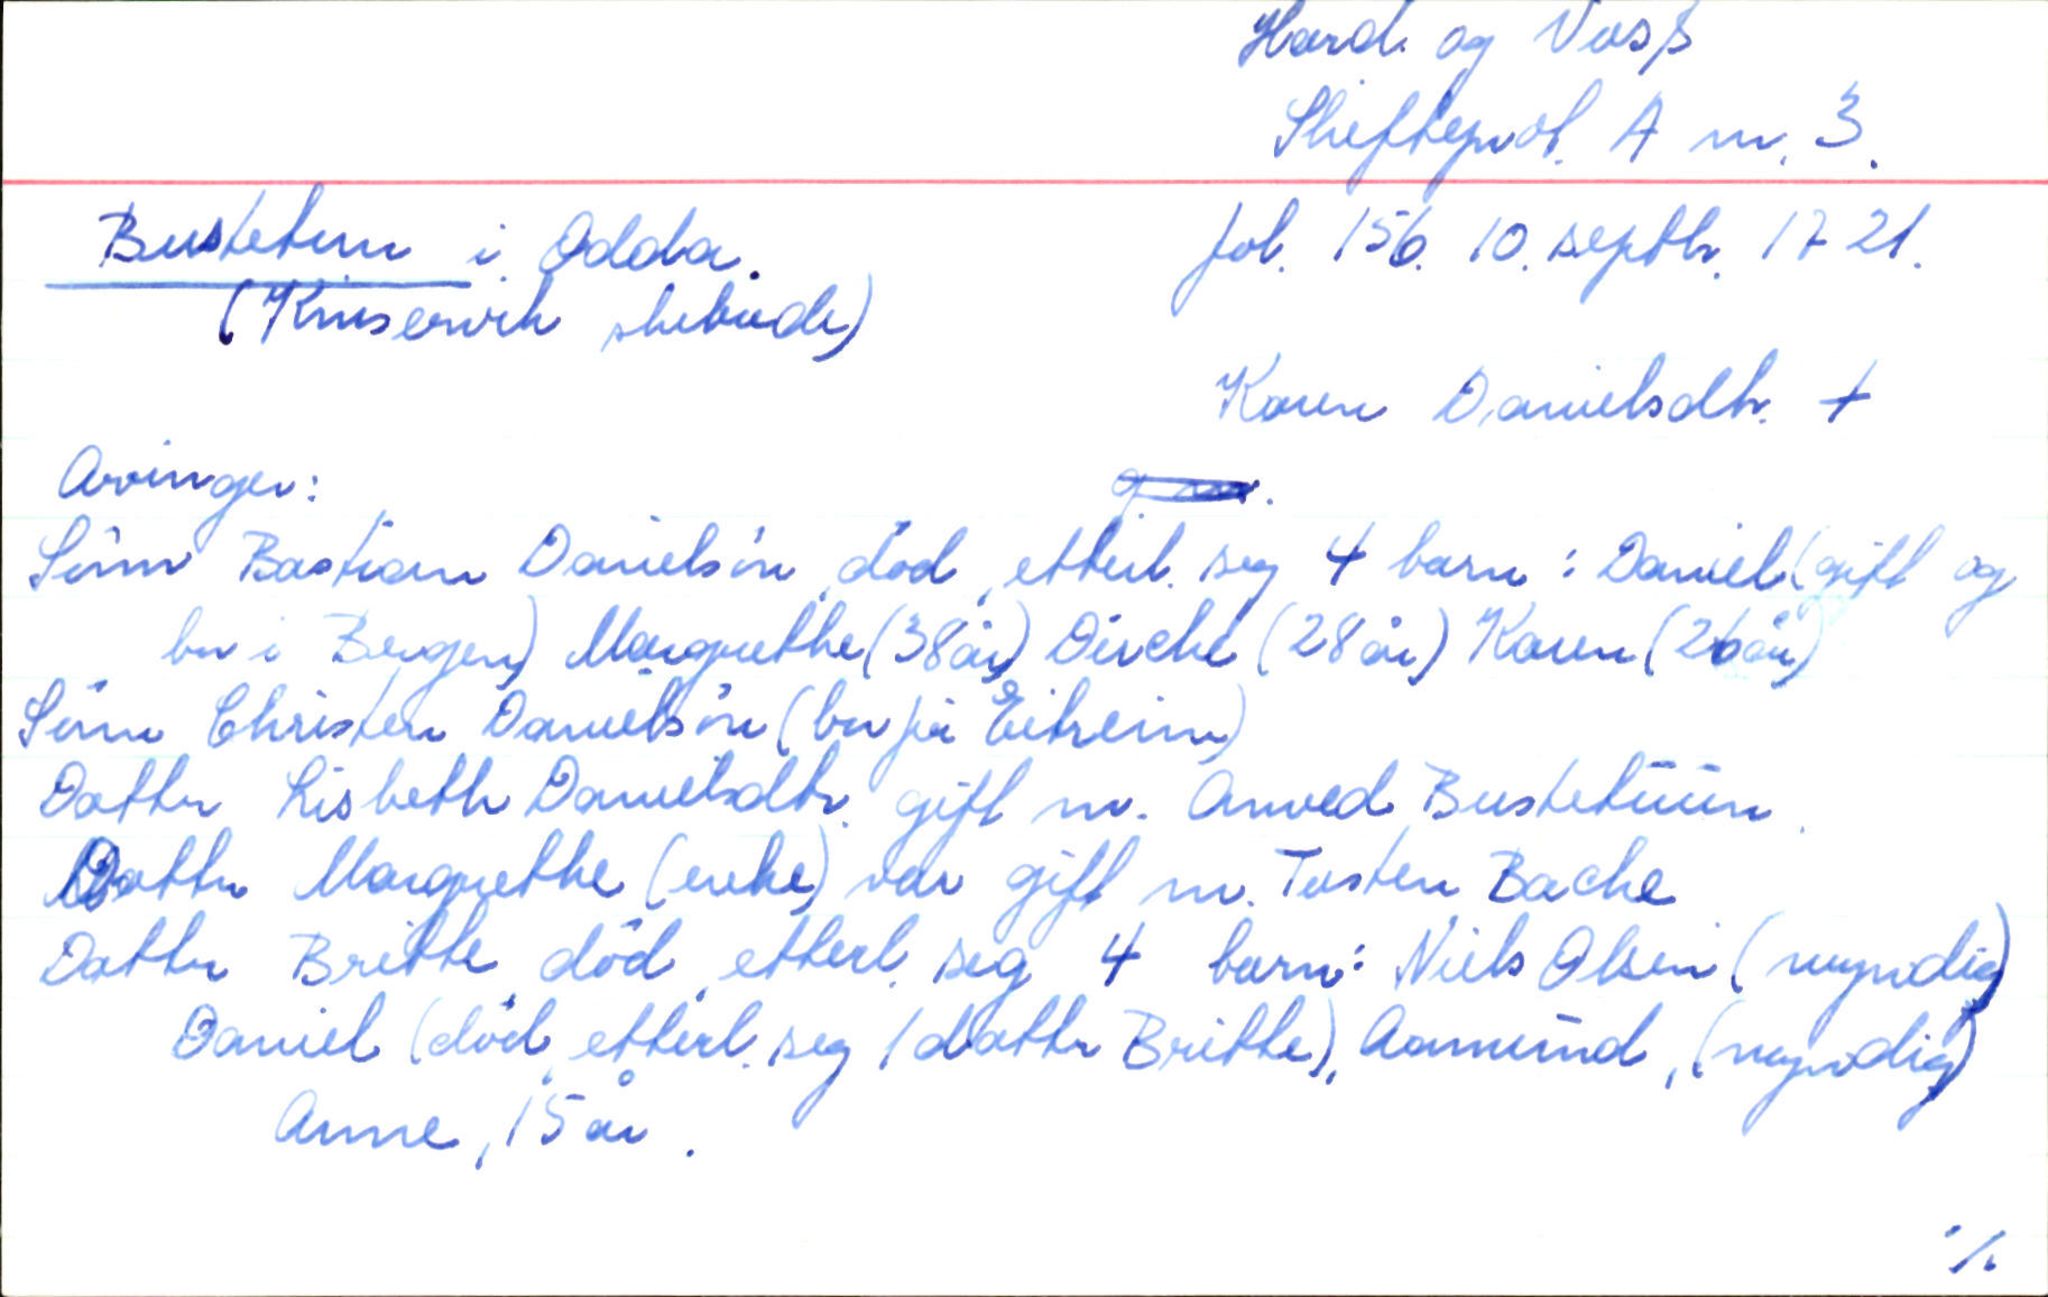 Hard. og Voss
Skifteprot. A nr. 3.
Bustetun i Odda.
fol. 156. 10. septbr. 1721.
(Kinservik skibrede)
Karen Danielsdtr. +
Arvinger:
Sönn Bastian Danielsön, död, etterl. seg 4 barn: Daniel (gift og
bor i Bergen) Margrethe (38 år) Dirche (28 år) Karen (26 år)
Sönn Christen Danielsön (bor på Eitreim)
Datter Lisbeth Danielsdtr. gift m. Amved Bustetuun.
Datter Margrethe (enke) var gift m. Tosten Bache
Datter Britte, död, etterl. seg 4 barn: Niels Olsen (myndig)
Daniel (död, etterl. seg 1 datter Britte), Aamund, (myndig)
Anne, 15 år.
./.